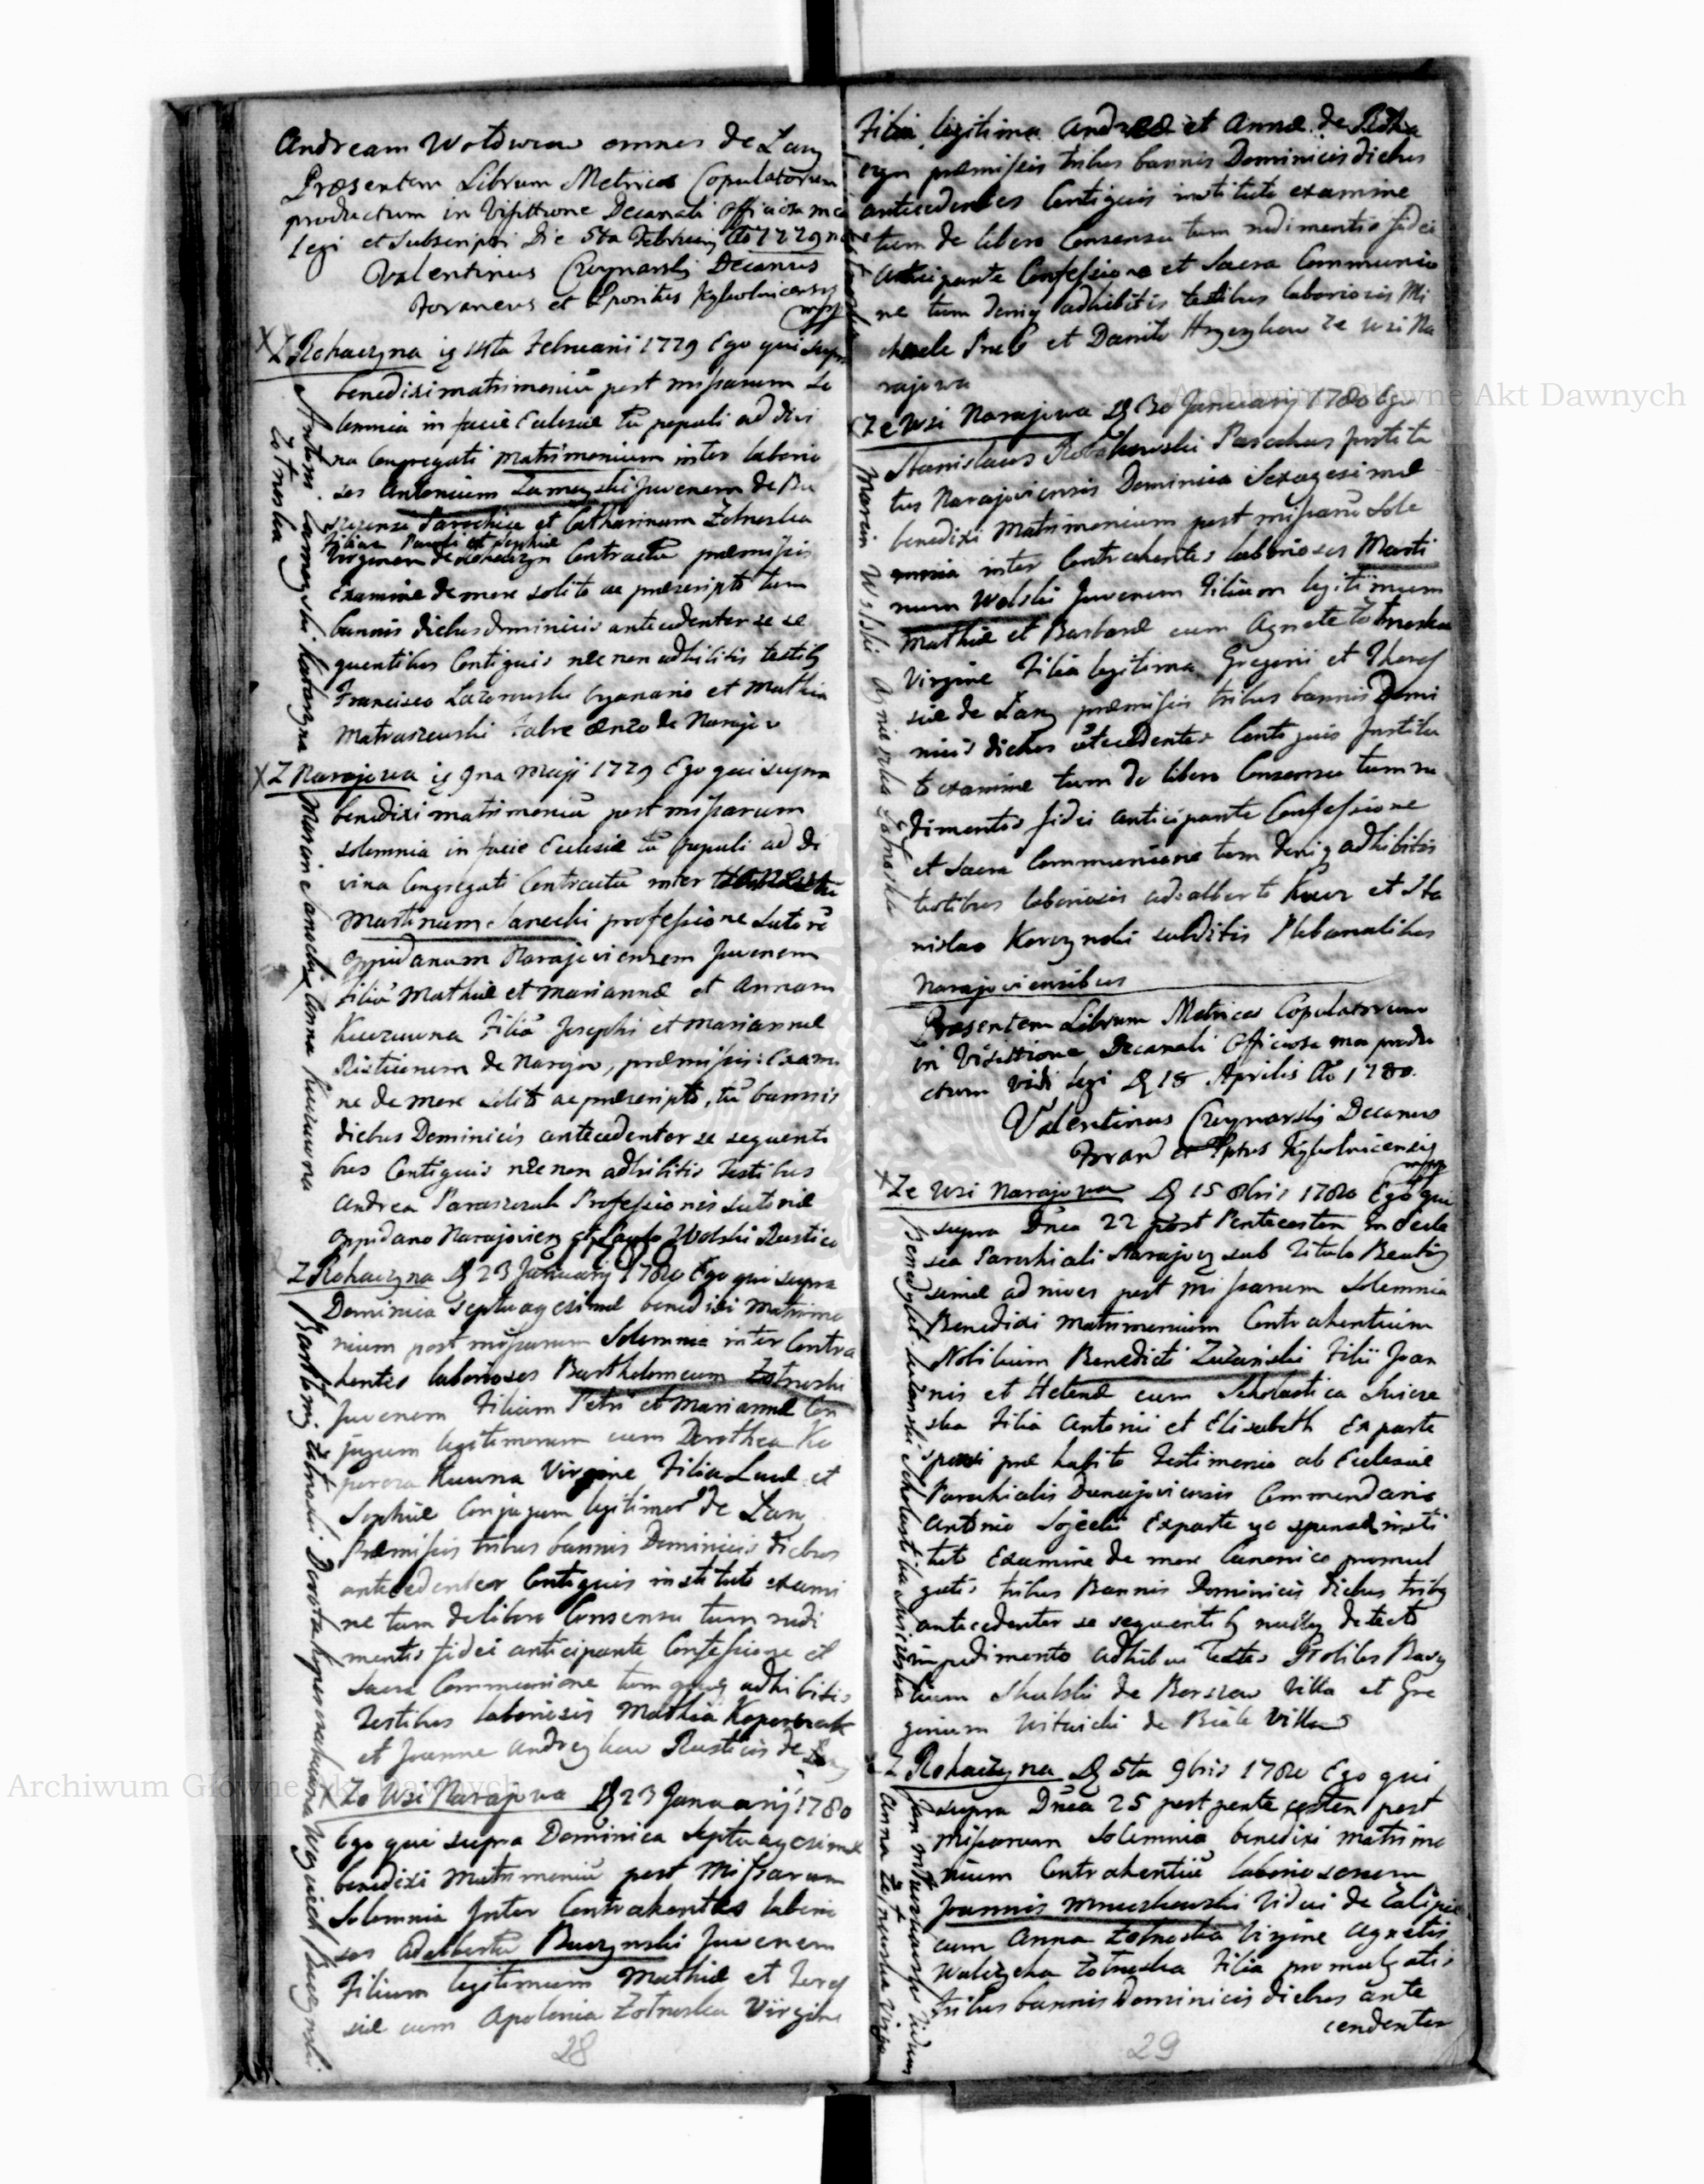 Andream Woldwin omnes de Łany
Præsentem Librum Metrices Copulatorum
productum in Visittione Decanali Officiosa mea
legi et subscripsi Die 5ta Februarij Ao 1779no
Valentinus Decanus
Foraneus et Ppositus
mpp
Z Rohaczyna ig 14ta Februarii 1779 Ego qui supra
benedixi matrimoniũ post missarum so
lemnia in facie Ecclesiæ tũ populi ad divi
na Congregati matrimonium inter laborio
sos Antonium Juvenem de Bu
Parochiæ et Catharinam Żołnoska
filiam Pauli et Sophiæ
Virginem de Rohaczyn Contractũ præmissis
Examine de more solito ac præscripto tum
bannis diebus dominicis antecedenter se se
quentibus Contiguis nec non adhibitis testib
Francisco Organario et Mathia
Matraszewski fabro de Narajow
Z Narajowa ig 9na Maji 1779 Ego qui supra
benedixi matrimoniũ post missarum
solemnia in facie Ecclesiæ tũ populi ad di
vina Congregati Contractũ inter
Martinum Janecki professione sutorẽ
oppidanum Narajoviensem Juvenem
filiũ Mathiæ et Mariannæ et Annam
filiã Josephi et Mariannæ
de Narajow, præmissis Exami
ne de more solito ac præscripto, tũ bannis
diebus Dominicis antecedenter se sequenti
bus Contiguis nec non adhibitis Testibus
Andrea Paraszczuk Professionis sutoriæ
oppidano Narajovien et Paulo Wolski Rustico
Z Rohaczyna D 23 Januarij 1780 Ego qui supra
Dominica Septuagesimæ benedixi matrimo
nium post missarum Solemnia inter Contra
hentes laboriosos Bartholomeum Żołnoski
Juvenem Filium Petri et Mariannæ Con
jugum legitimorum cum Dorothea Ko
Virgine Filia Lucæ et
Sophiæ Conjugum legitimor de Łany
Præmissis tribus bannis Dominicis diebus
antecedenter Contiguis instituto exami
ne tum de libero Consensu tum rudi
mentis fidei anticipante Confessione et
sacra Communione tum adhibitis
Testibus laboriosis Mathia
et Joanne Andreykow Rusticis de Łany
Ze Wsi Narajowa D 23 Januarij 1780
Ego qui supra Dominica Septuagesimæ
benedixi Matrimoniũ post Missarum
Solemnia Inter Contrahentes laborio
sos Adalbertũ Buczynski Juvenem
Filium legitimum Mathiæ et There
siæ cum Apolonia Żołnoska Virgine
28
Antoni Katarzyna
Żołnoska
Marcin Janecki Anna
Bartłomiej Żołnoski Dorota
Woyciech Buczynski
Filia legitima Andreæ et Annæ de Roha
czyn præmissis tribus bannis Dominicis diebus
antecedenter Contiguis instituto examine
tum de libero Consensu tum rudimentis fidei
anticipante Confessione et Sacra Communio
ne tum deniq adhibitis testibus laboriosis Mi
chaele et Danilo Hryczykow ze wsi Na
rajowa
Ze wsi Narajowa D 30 Januarij 1780 Ego
Stanislaus Parochus Institu
tus Narajoviensis Dominica Sexagesimæ
benedixi Matrimonium post missarũ Sole
mnia inter Contrahentes laboriosos Marti
num Wolski Juvenem Filium legitimum
Mathiæ et Barbaræ cum Agnete Żołnoska
Virgine Filia legitima Gregorii et There
siæ de Łany præmissis tribus bannis Domi
nicis diebus antecedenter Contiguis Institu
to examine tum de libero Consensu tum ru
dimentis fidei anticipante Confessione
et Sacra Communione tum deniq adhibitis
testibus laboriosis Adalberto et Sta
nislao Korczynski subditis Plebanalibus
Narajoviensibus
Præsentem Librum Metrices Copulatorum
in Visittione Decanali Officiosa mea produ
ctum vidi legi D 18 Aprilis Ao 1780.
Valentinus Decanus
Foran et Pptus
mpp
Ze wsi Narajowa D 15 8bris 1780 Ego qui
supra Dnca 22 post Pentecosten in Eccle
sia Parochiali Narajov sub Titulo Beatis
simæ ad nives post missarum Solemnia
Benedixi Matrimonium Contrahentium
Nobilium Benedicti Filii Joan
nis et Helenæ cum Scholastica
Filia Antonii et Elisabeth Ex parte
sponsi præ habito Testimonio ab Ecclesiæ
Parochialis Dunajoviensis Commendario
Antonio Sojecki Exparte vo sponsæ insti
tuto Examine de more Canonico promul
gatis tribus Bannis Dominicis diebus trib
antecedenter se sequentib nulloq detecto
impedimento adhibui Testes Nobiles Basy
lium Skulski de Villa et Gre
gorium Witwicki de Villa
Z Rohaczyna D 5ta 9bris 1780 Ego qui
supra Dnca 25 post pentecosten post
missarum solemnia benedixi matrimo
nium Contrahentiũ laboriosorum
Joannis Vidui de
cum Anna Żołnoska Virgine Agnetis
Żołnoska Filia promulgatis
tribus bannis Dominicis diebus ante
cendenter
29
Marcin Wolski Agnieszka Żołnoska
Benedykt Scholastika
Jan Viduus
Anna Żołnoska Virgo
Archiwum Główne Akt Dawnych
Archiwum Główne Akt Dawnych